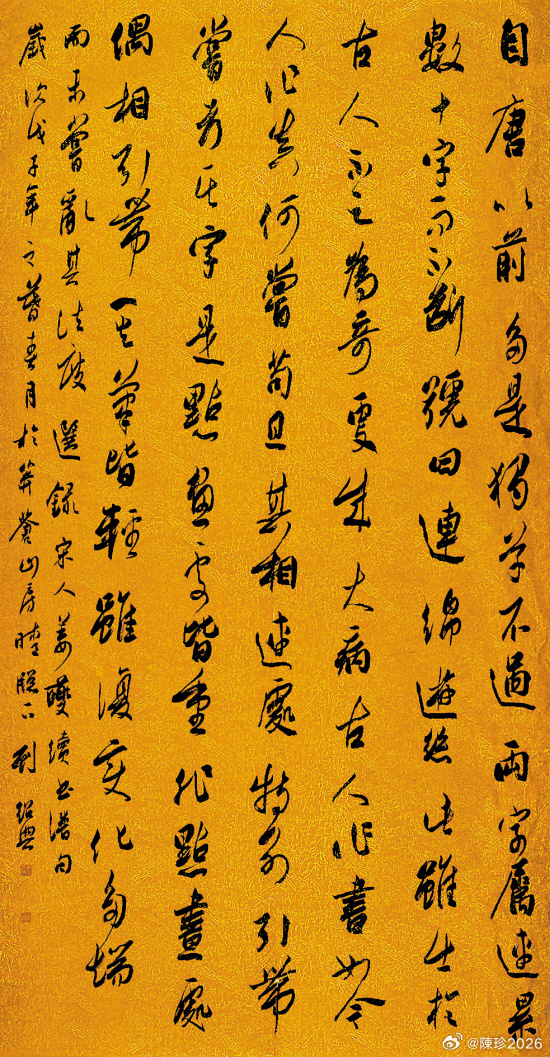 自唐以前多是獨草不過兩字屬連累
數十字而不斷號曰連綿遊絲此雖出於
古人不足為奇更成大病古人作書如今
人作真何嘗苟且其相連處特引帶
嘗考其字是點畫處皆重非點畫處
偶相引帶其筆皆輕雖復變化多端
而未嘗亂其法度 選錄宋人姜夔續書譜句
歲次戊子年之暮春月於莽蒼山房晴牕下 劉紹典
@陳珍2026